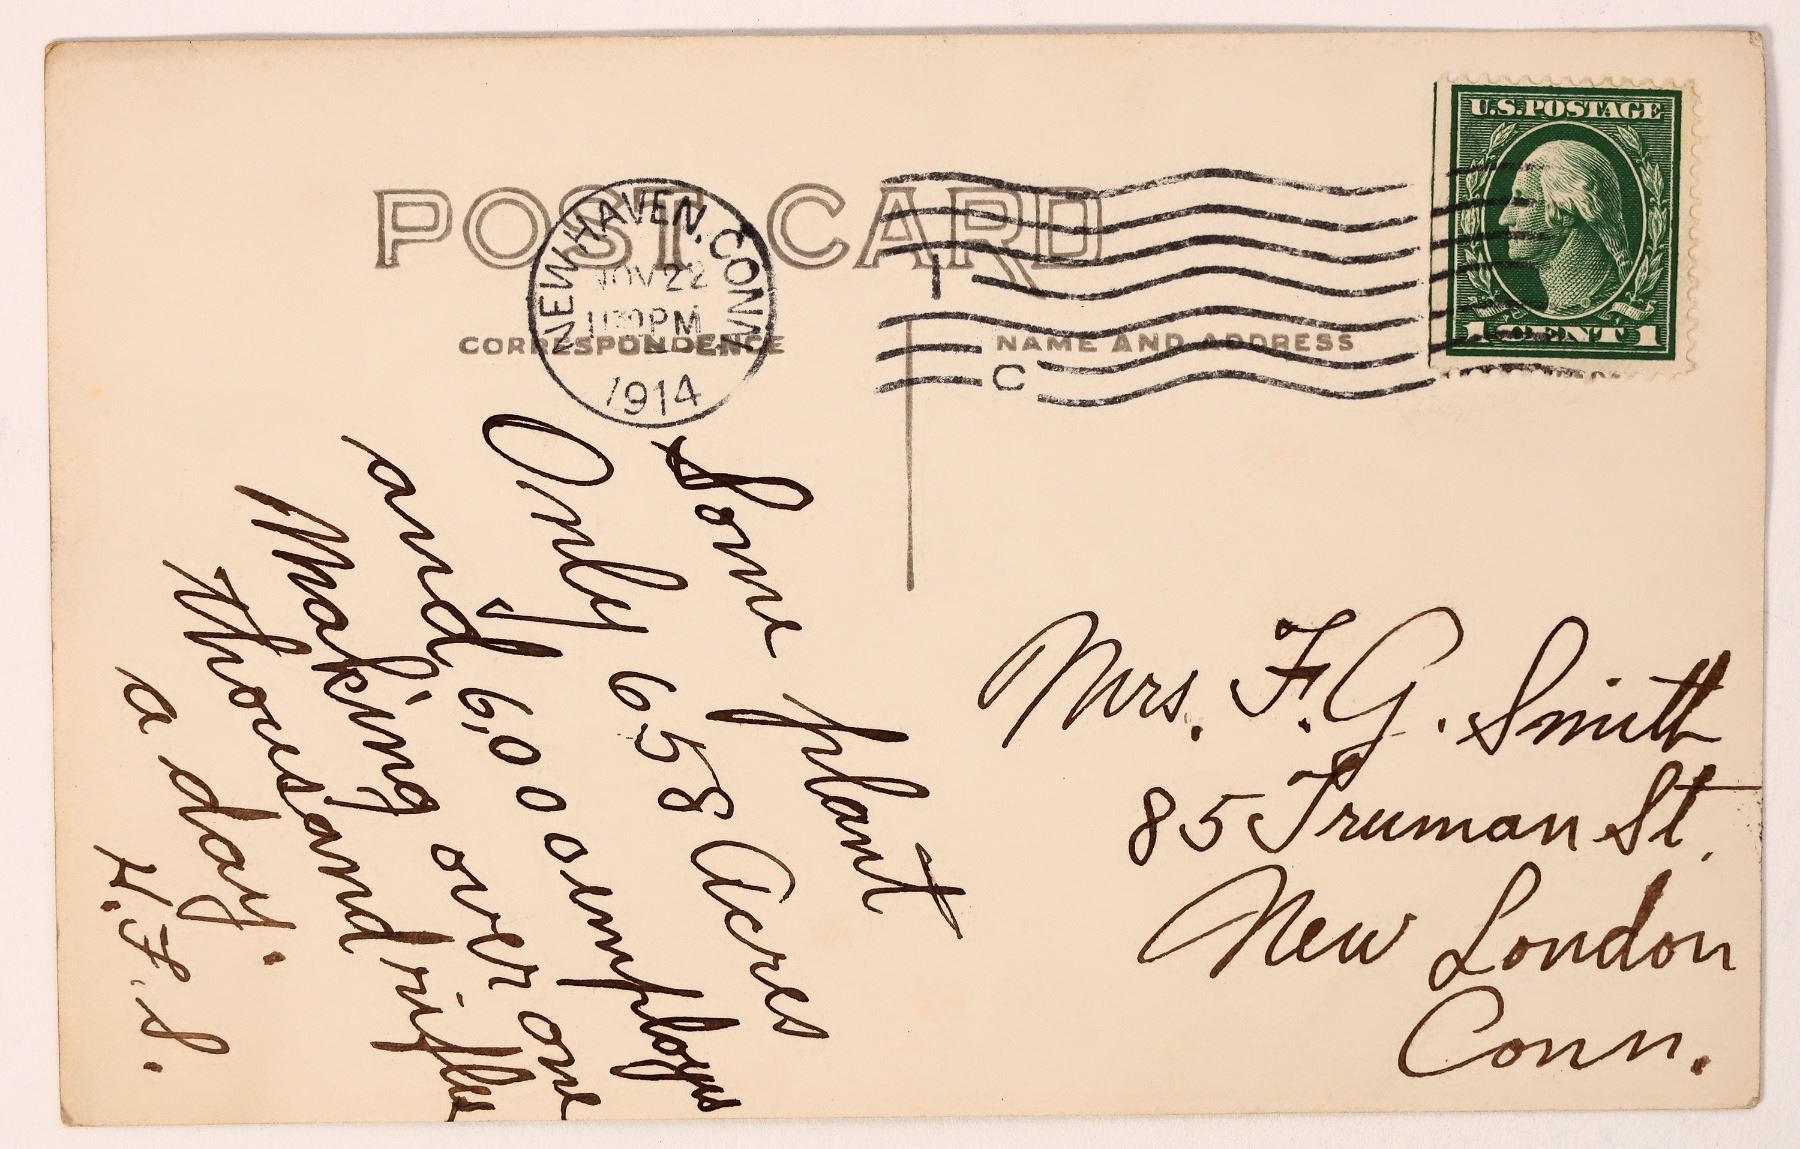 POST CARD
NEW HAVEN, CONN.
NOV 22
PM
1914
1
C
U.S. POSTAGE
1 CENT 1
CORRESPONDENCE
NAME AND ADDRESS
Some plant
Only 658 Acres
and 6,000 employes
Making over one
thousand rifles
a day.
H.F.S.
Mrs. F.G. Smith
85 Truman St.
New London
Conn.